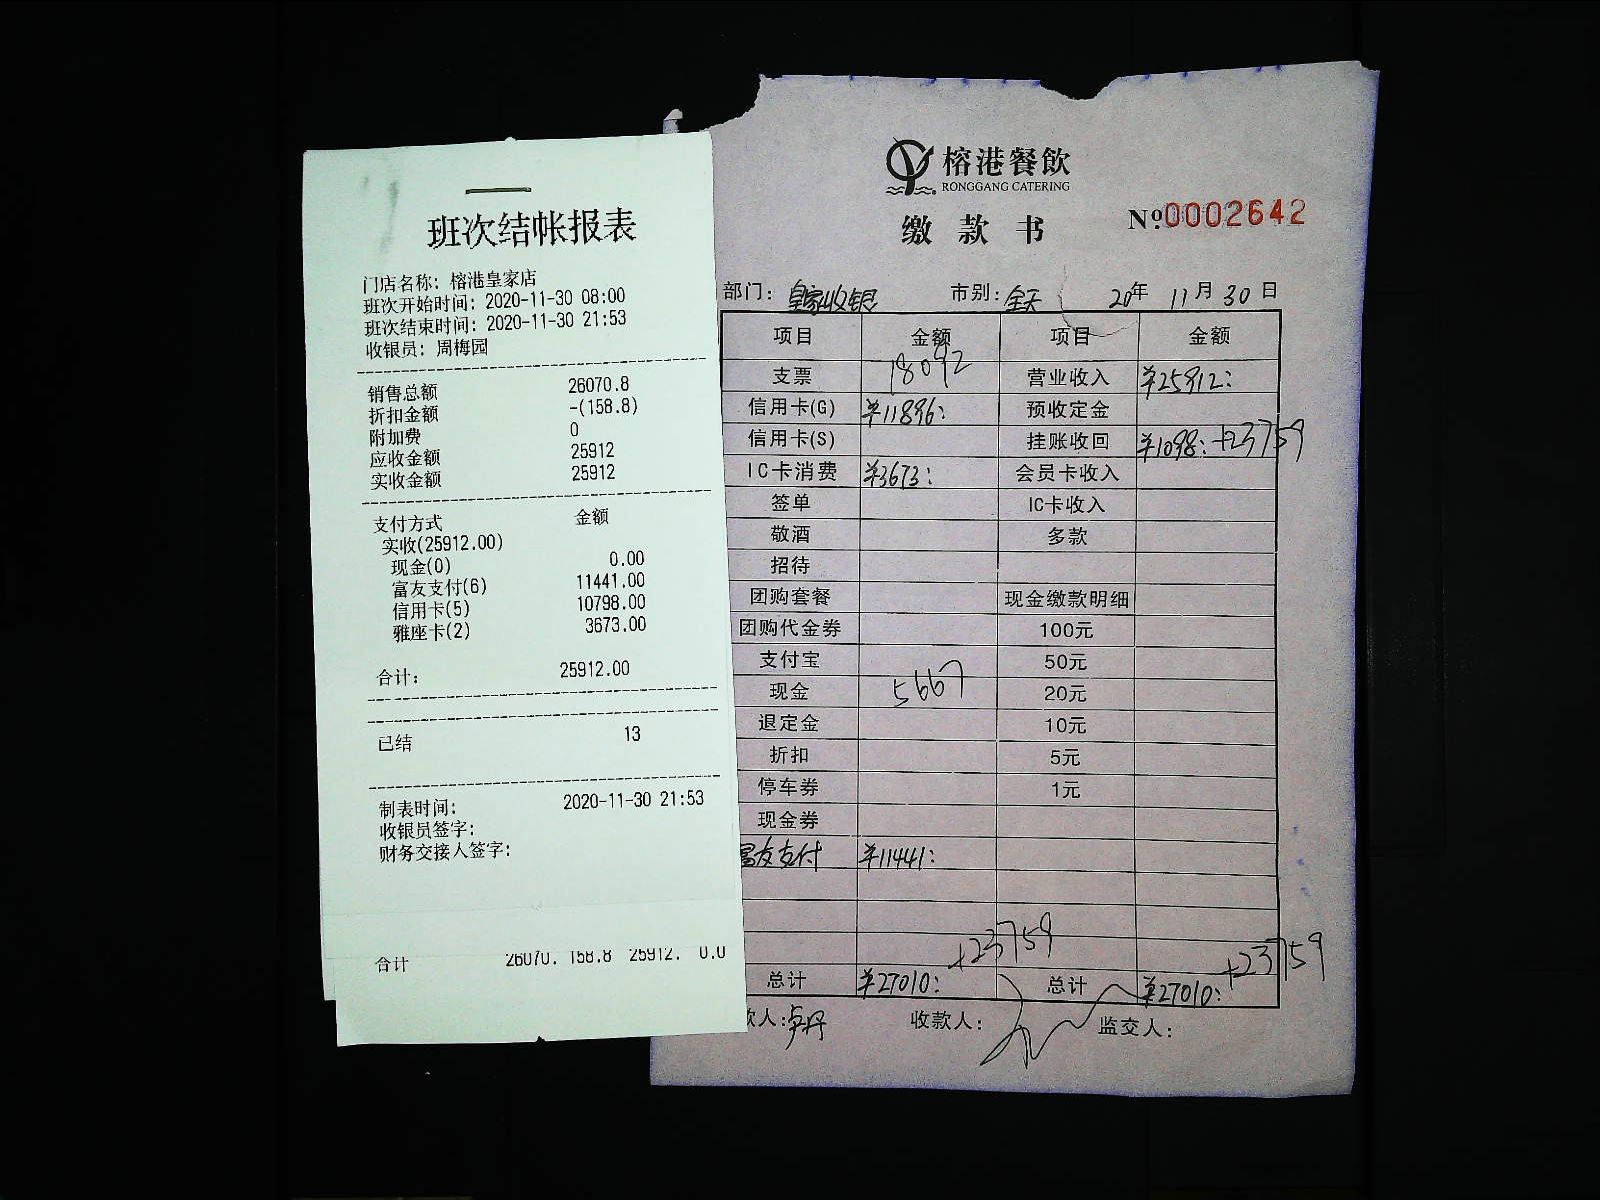 班次结帐报表
门店名称: 榕港皇家店
班次开始时间: 2020-11-30 08:00
班次结束时间: 2020-11-30 21:53
收银员: 周梅园
销售总额 26070.8
折扣金额 -(158.8)
附加费 0
应收金额 25912
实收金额 25912
支付方式 金额
实收(25912.00)
现金(0) 0.00
富友支付(6) 11441.00
信用卡(5) 10798.00
雅座卡(2) 3673.00
合计: 25912.00
已结 13
制表时间: 2020-11-30 21:53
收银员签字:
财务交接人签字:
合计 26070. 158.8 25912. 0.0
榕港餐飲
RONGGANG CATERING
缴款书 №0002642
部门: 皇家收银 市别: 全天 20年 11月 30日
项目 金额 项目 金额
支票 18092 营业收入 ¥25912:
信用卡(G) ¥11896: 预收定金
信用卡(S) 挂账收回 ¥1098: +23759
IC卡消费 ¥3673: 会员卡收入
签单 IC卡收入
敬酒 多款
招待
团购套餐 现金缴款明细
团购代金券 100元
支付宝 50元
现金 5667 20元
退定金 10元
折扣 5元
停车券 1元
现金券
富友支付 ¥11441:
+23759 +23759
总计 ¥27010: 总计 ¥27010:
款人: 卢丹 收款人: 监交人: